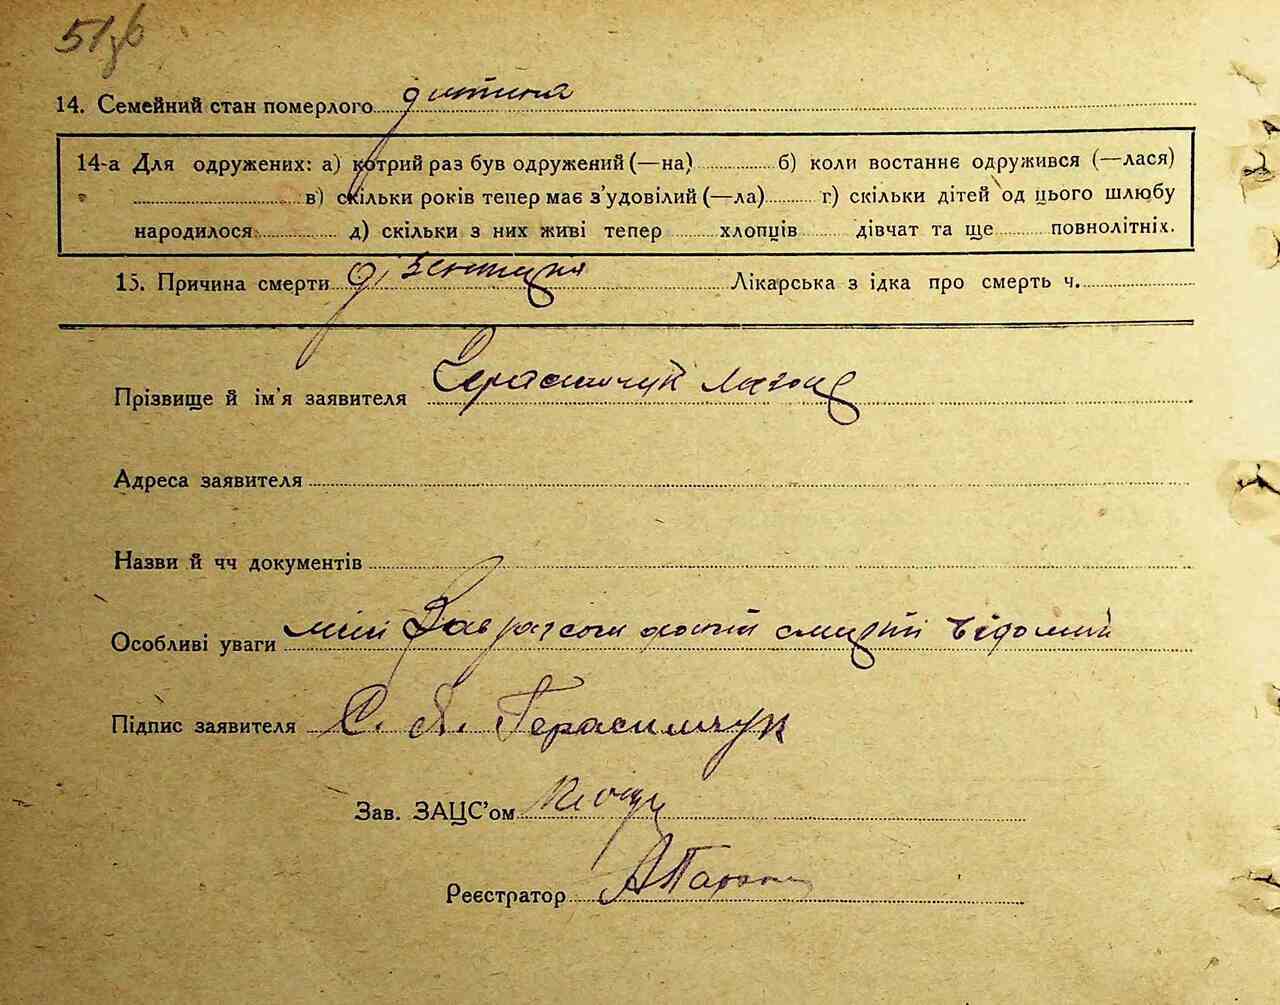 51зв
14. Семейний стан померлого дитина
14-а Для одружених: а) котрий раз був одружений (—на) б) коли востаннє одружився (—лася)
в) скільки років тепер має з'удовілий (—ла) г) скільки дітей од цього шлюбу
народилося д) скільки з них живі тепер хлопців дівчат та ще повнолітніх.
15. Причина смерти дізентирія Лікарська з ідка про смерть ч.
Прізвище й ім'я заявителя Герасимчук
Адреса заявителя
Назви й чч документів
Особливі уваги мній смерті відомий
Підпис заявителя С. Я. Герасимчук
Зав. ЗАЦС'ом
Реєстратор